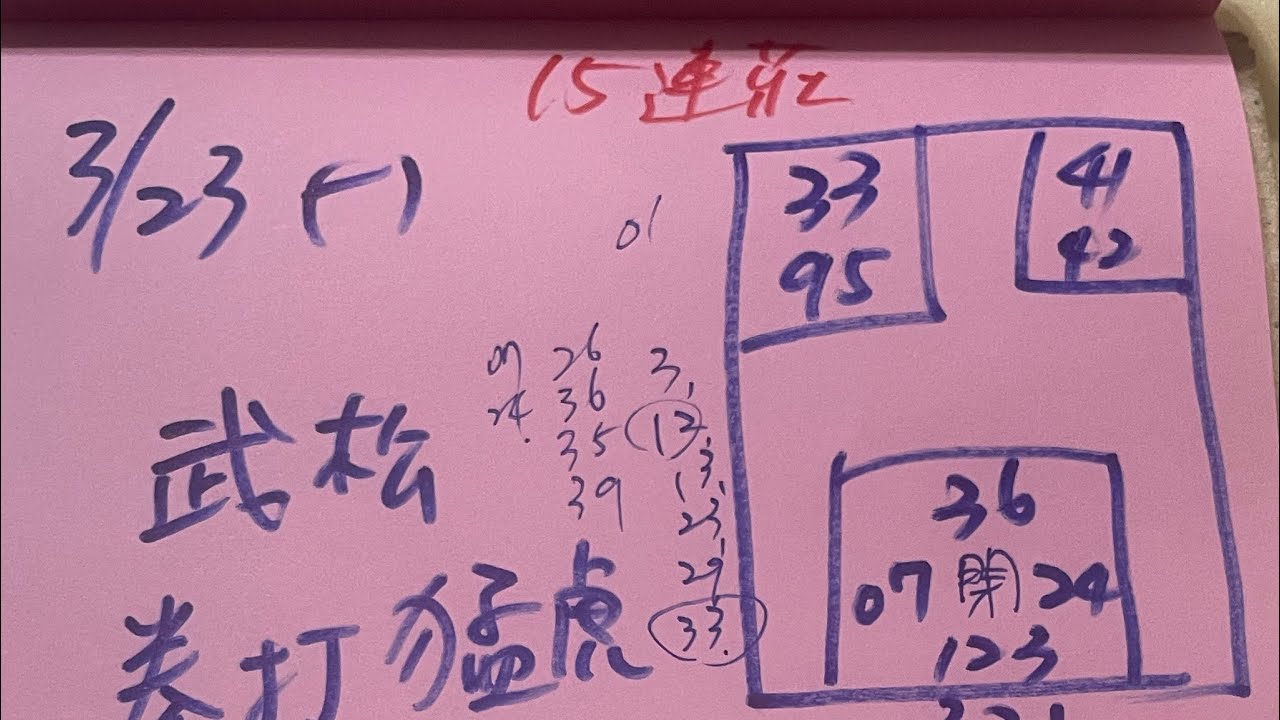 15連莊
3/23 (一)
01
33
95
41
42
07 26 3,
24. 36 13,
35 13,
39 23,
29,
33.
武松
拳打猛虎
36
07 開 24
123
321